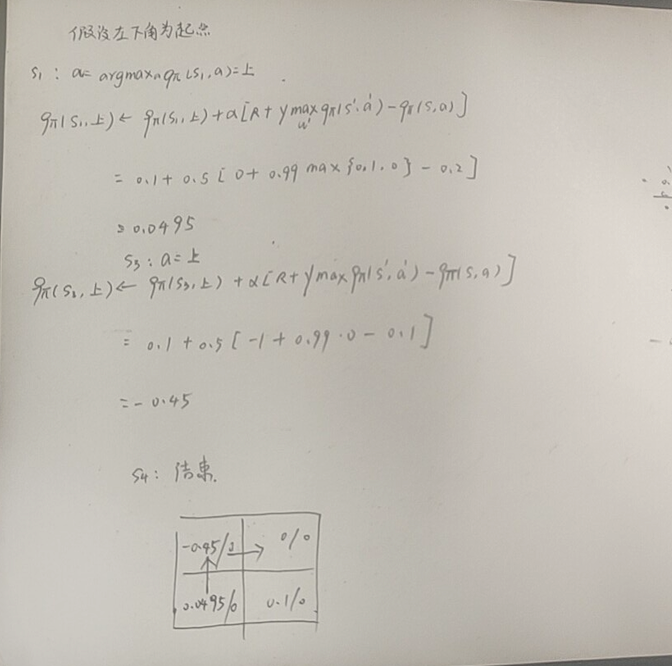 假设左下角为起点
S₁ : a = argmaxₐ qπ(S₁,a)=上
qπ(S₁,上) ← qπ(S₁,上)+α[R+γ max qπ(s',a')-qπ(s,a)]
a'
= 0.1 + 0.5 [ 0 + 0.99 max {0.1.0} - 0.2 ]
= 0.0495
S₃ : a = 上
qπ(S₃,上) ← qπ(S₃,上) + α[R+γ max qπ(s',a')-qπ(s,a)]
= 0.1 + 0.5 [ -1 + 0.99 · 0 - 0.1 ]
= - 0.45
S₄ : 结束.
-0.45/ 0/0
0.0495/0 0.1/0